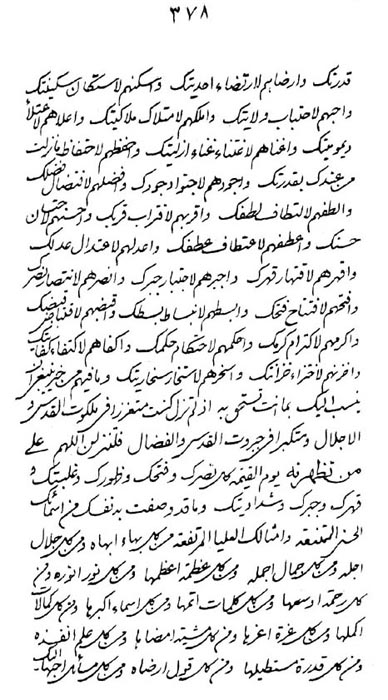 ٣٧٨
قدرتك وارضاهم لارتضاء احديتك واسكنهم لاستكان سكينتك
واجبهم لاحتباب ولايتك واملكهم لامتلاك ملاكيتك واعلاهم لاعتلاء
ديموميتك واغناهم لاغتناء غناء ازليتك واحفظهم لاحتفاظ مانزلت
من عندك بقدرتك واجودهم لاجتواد جودك وافضلهم لافتضال فضلك
والطفهم لالتطاف لطفك واقربهم لاقتراب قربك واحسنهم لاحتسان
حسنك واعطفهم لاعتطاف عطفك واعدلهم لاعتدال عدلك
واقهرهم لاقتهار قهرك واجبرهم لاجتبار جبرك وانصرهم لانتصار نصرك
وافتحهم لافتتاح فتحك وابسطهم لابتساط بسطك واقبضهم لاقتباض قبضك
واكرمهم لاكترام كرمك واحكمهم لاحتكام حكمك واكفاهم لاكتفاء كفايتك
واخزنهم لاختزاء خزانتك واسخرهم لاستخار سخاريتك ومافيهم من خير
ينسب اليك بما انت تستحق به اذ لم تزل كنت متعززا فى ملكوت القدس و
الاجلال ومتكبرا فى جبروت القدس والفضال فلتنزلن اللهم على
من تظهرنه يوم القيمة كل نصرك وفتحك وظهورك وغلبتك و
قهرك وجبرك وشدادتيك وما قد وصفت به نفسك من اسمائك
الحسنى الممتنعة وامثالك العليا المرتفعة من كل بهاء ابهاه ومن كل جلال
اجله ومن كل جمال اجمله ومن كل عظمة اعظمها ومن كل نور انوره ومن
كل رحمة اوسعها ومن كل كلمات اتمها ومن كل اسماء اكبرها ومن كل كمالات
اكملها ومن كل عزة اعزها ومن كل مشية امضاها ومن كل علم انفذه
ومن كل قدرة مستطيلها ومن كل قول ارضاه ومن كل مسائل احبها اليك